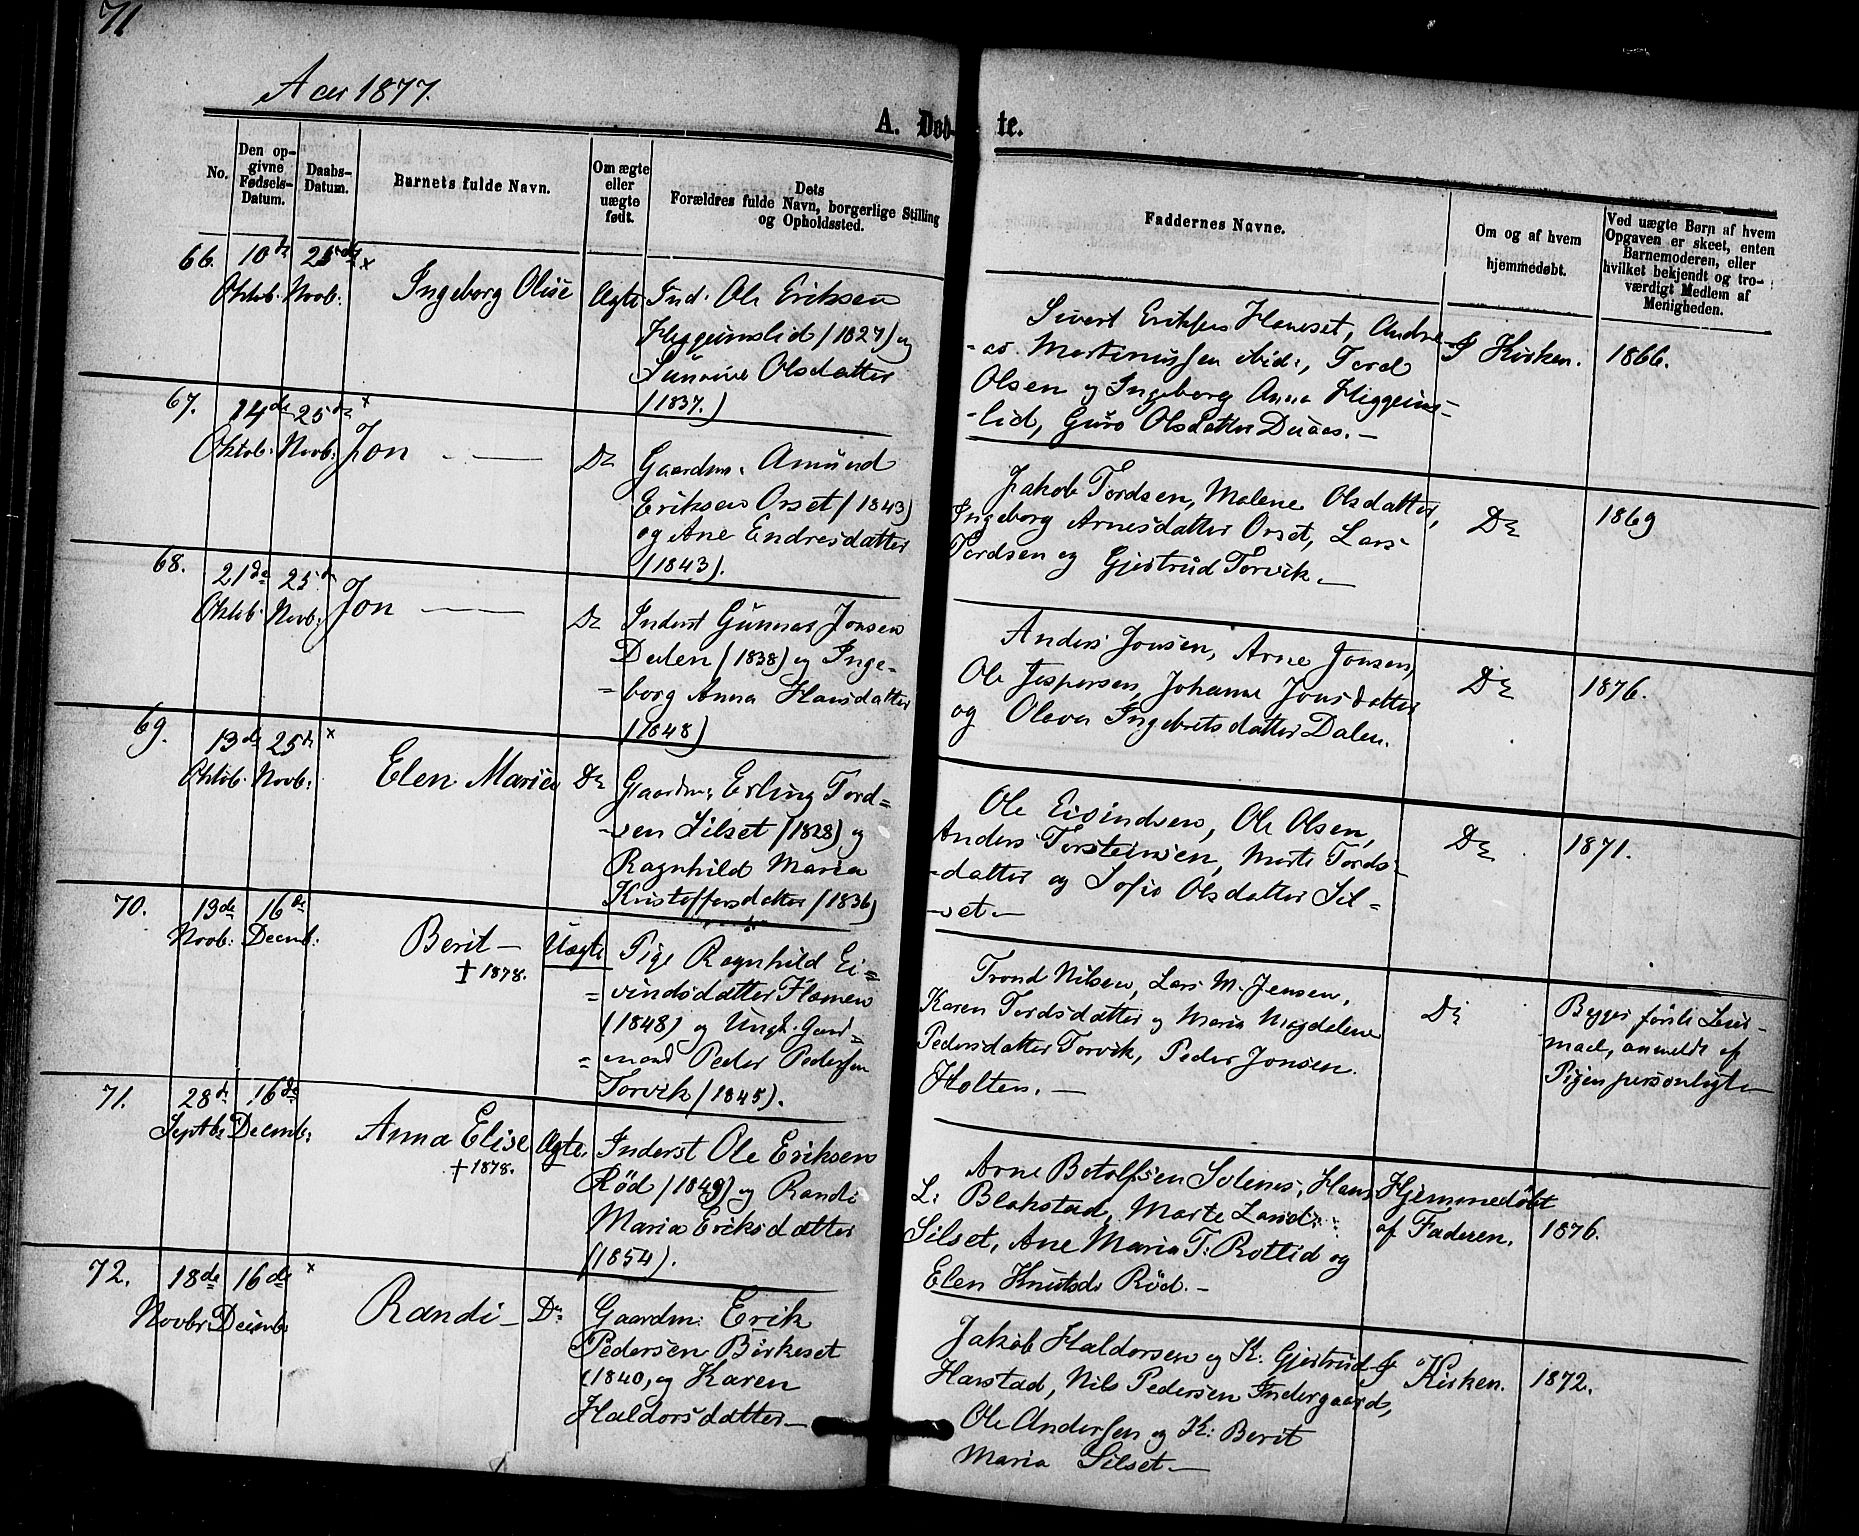 71
Aar 1877.
A. Døb- te.
No.
Den op-
givne
Fødsels-
Datum.
Daabs-
Datum.
Barnets fulde Navn.
Om ægte
eller
uægte
født.
Dets
Forældres fulde Navn, borgerlige Stilling
og Opholdssted.
Faddernes Navne.
Om og af hvem
hjemmedøbt.
Ved uægte Børn af hvem
Opgaven er skeet, enten
Barnemoderen, eller
hvilket bekjendt og tro-
værdigt Medlem af
Menigheden.
66. 10de 25de x
Oktob. Novb:
Ingeborg Olise
Ægte
Ind. Ole Eriksen
Heggeimslid (1827) og
Sunnive Olsdatter
(1837.)
Sivert Eriksen Hanset, Andre-
-as Martinussen ibid:, Tord
Olsen og Ingeborg Anna Heggeims-
-lid, Guro Olsdatter Duaas.-
I Kirken.
1866.
67. 14de 25de x
Oktob. Novb.
Jon
Do
Gaardm. Amund
Eriksen Orset (1843)
og Ane Endresdatter
(1843).
Jakob Tordsen, Malene Olsdatter,
Ingeborg Arnesdatter Orset, Lars
Tordsen og Gjertrud Torvik.-
Do
1869
68. 21de 25de
Oktob. Novb.
Jon
Do
Inderst Gunnar Jonsen
Dalen (1838) og Inge-
=borg Anna Hansdatter
(1848)
Anders Jonsen, Arne Jonsen,
Ole Jespersen, Johanne Jonsdatter
og Oleva Ingebretsdatter Dalen.
Do
1876.
69. 13de 25de x
Oktob. Novb:
Elen Marie
Do
Gaardm: Erling Tord=
-sen Silset (1828) og
Ragnhild Maria
Kristoffersdatter (1836)
Ole Eivindsen, Ole Olsen,
Anders Torsteinsen, Marte Tords-
-datter og Sofie Olsdatter Sil=
-set.-
Do
1871.
70. 13de 16de
Novb: Decmb:
Berit -
† 1878.
Uægte
Pige Ragnhild Ei=
=vindsdatter Flemen
(1848) og Ungk. Gaard=
=mand Peder Pedersen
Torvik (1845).
Trond Nilsen, Lars M. Jensen,
Karen Tordsdatter og Maria Magdalene
Pedersdatter Torvik, Peder Jonsen
Holten.-
Do
Begges første Leier-
maal, anmeldt af
Pigen personligt
71. 28de 16de
Septbr Decmb:
Anna Elise
† 1878.
Ægte.
Inderst Ole Eriksen
Rød (1849) og Randi
Maria Eriksdatter
(1854).
Arne Botolfsen Solenes, Hans
L: Blakstad, Marte Larsd::
Silset, Ane Maria T: Rottid og
Elen Knutsd: Rød.-
Hjemmedøbt
af Faderen.
1876.
72. 18de 16de x
Novbr Decmb:
Randi -
Do
Gaardm: Erik
Pedersen Birkeset
(1840, og Karen
Haldorsdatter-
Jakob Haldorsen og K. Gjertrud
Harstad, Nils Pedersen Indergaard,
Ole Andersen og K: Berit
Maria Silset.-
I Kirken.
1872.